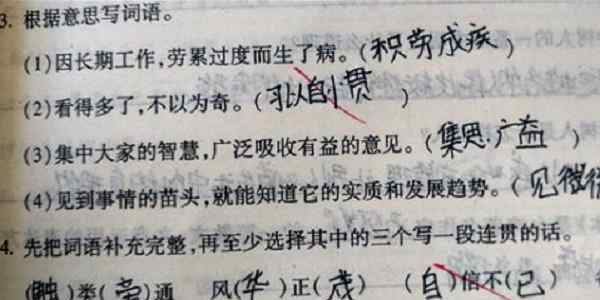 3. 根据意思写词语。
(1)因长期工作,劳累过度而生了病。(积劳成疾)
(2)看得多了,不以为奇。(习以为贯)
(3)集中大家的智慧,广泛吸收有益的意见。(集思广益)
(4)见到事情的苗头,就能知道它的实质和发展趋势。(见微
4. 先把词语补充完整,再至少选择其中的三个写一段连贯的话。
(触)类(旁)通 风(华)正(茂) (自)信不(己)